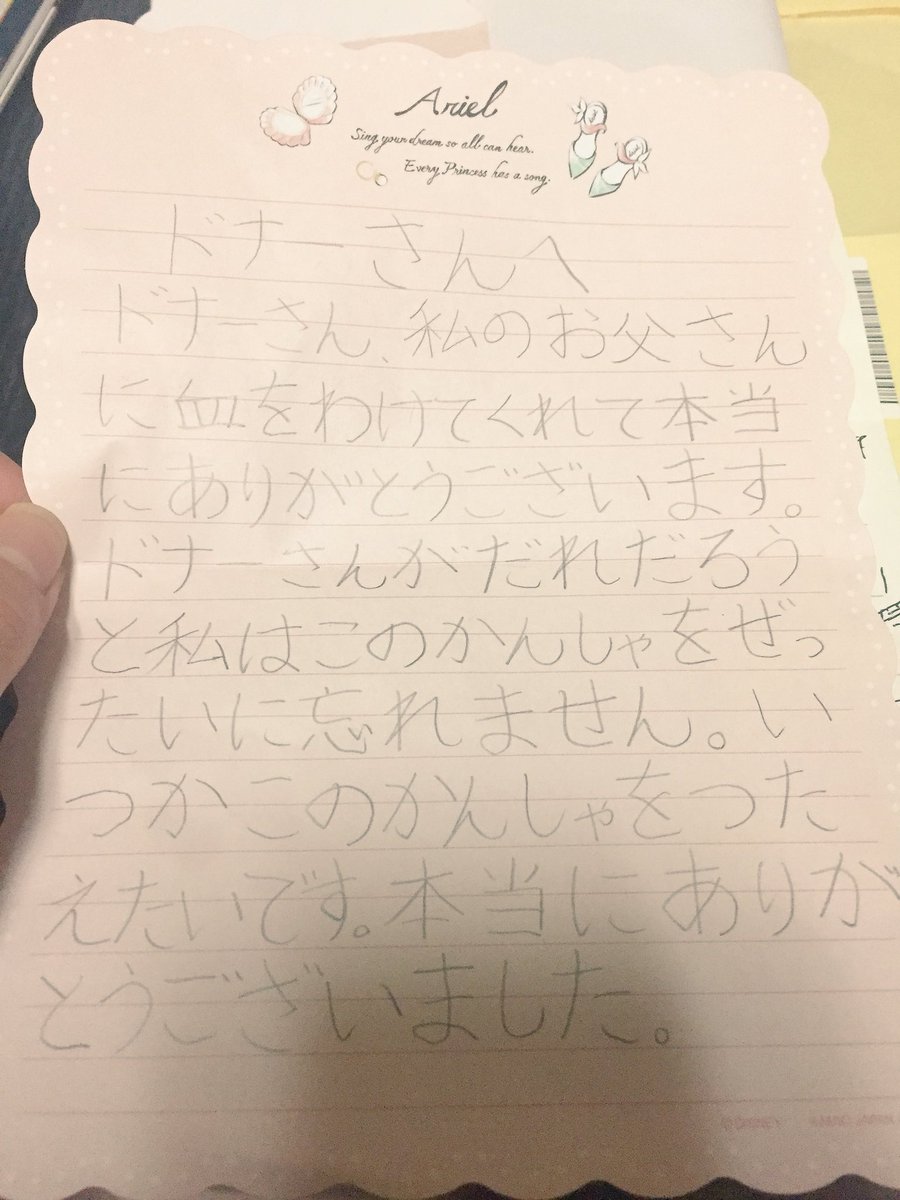 Ariel
Sing your dream so all can hear.
Every Princess has a song.
ドナーさんへ
ドナーさん、私のお父さん
に血をわけてくれて本当
にありがとうございます。
ドナーさんがだれだろう
と私はこのかんしゃをぜっ
たいに忘れません。い
つかこのかんしゃをつた
えたいです。本当にありが
とうございました。
©DISNEY